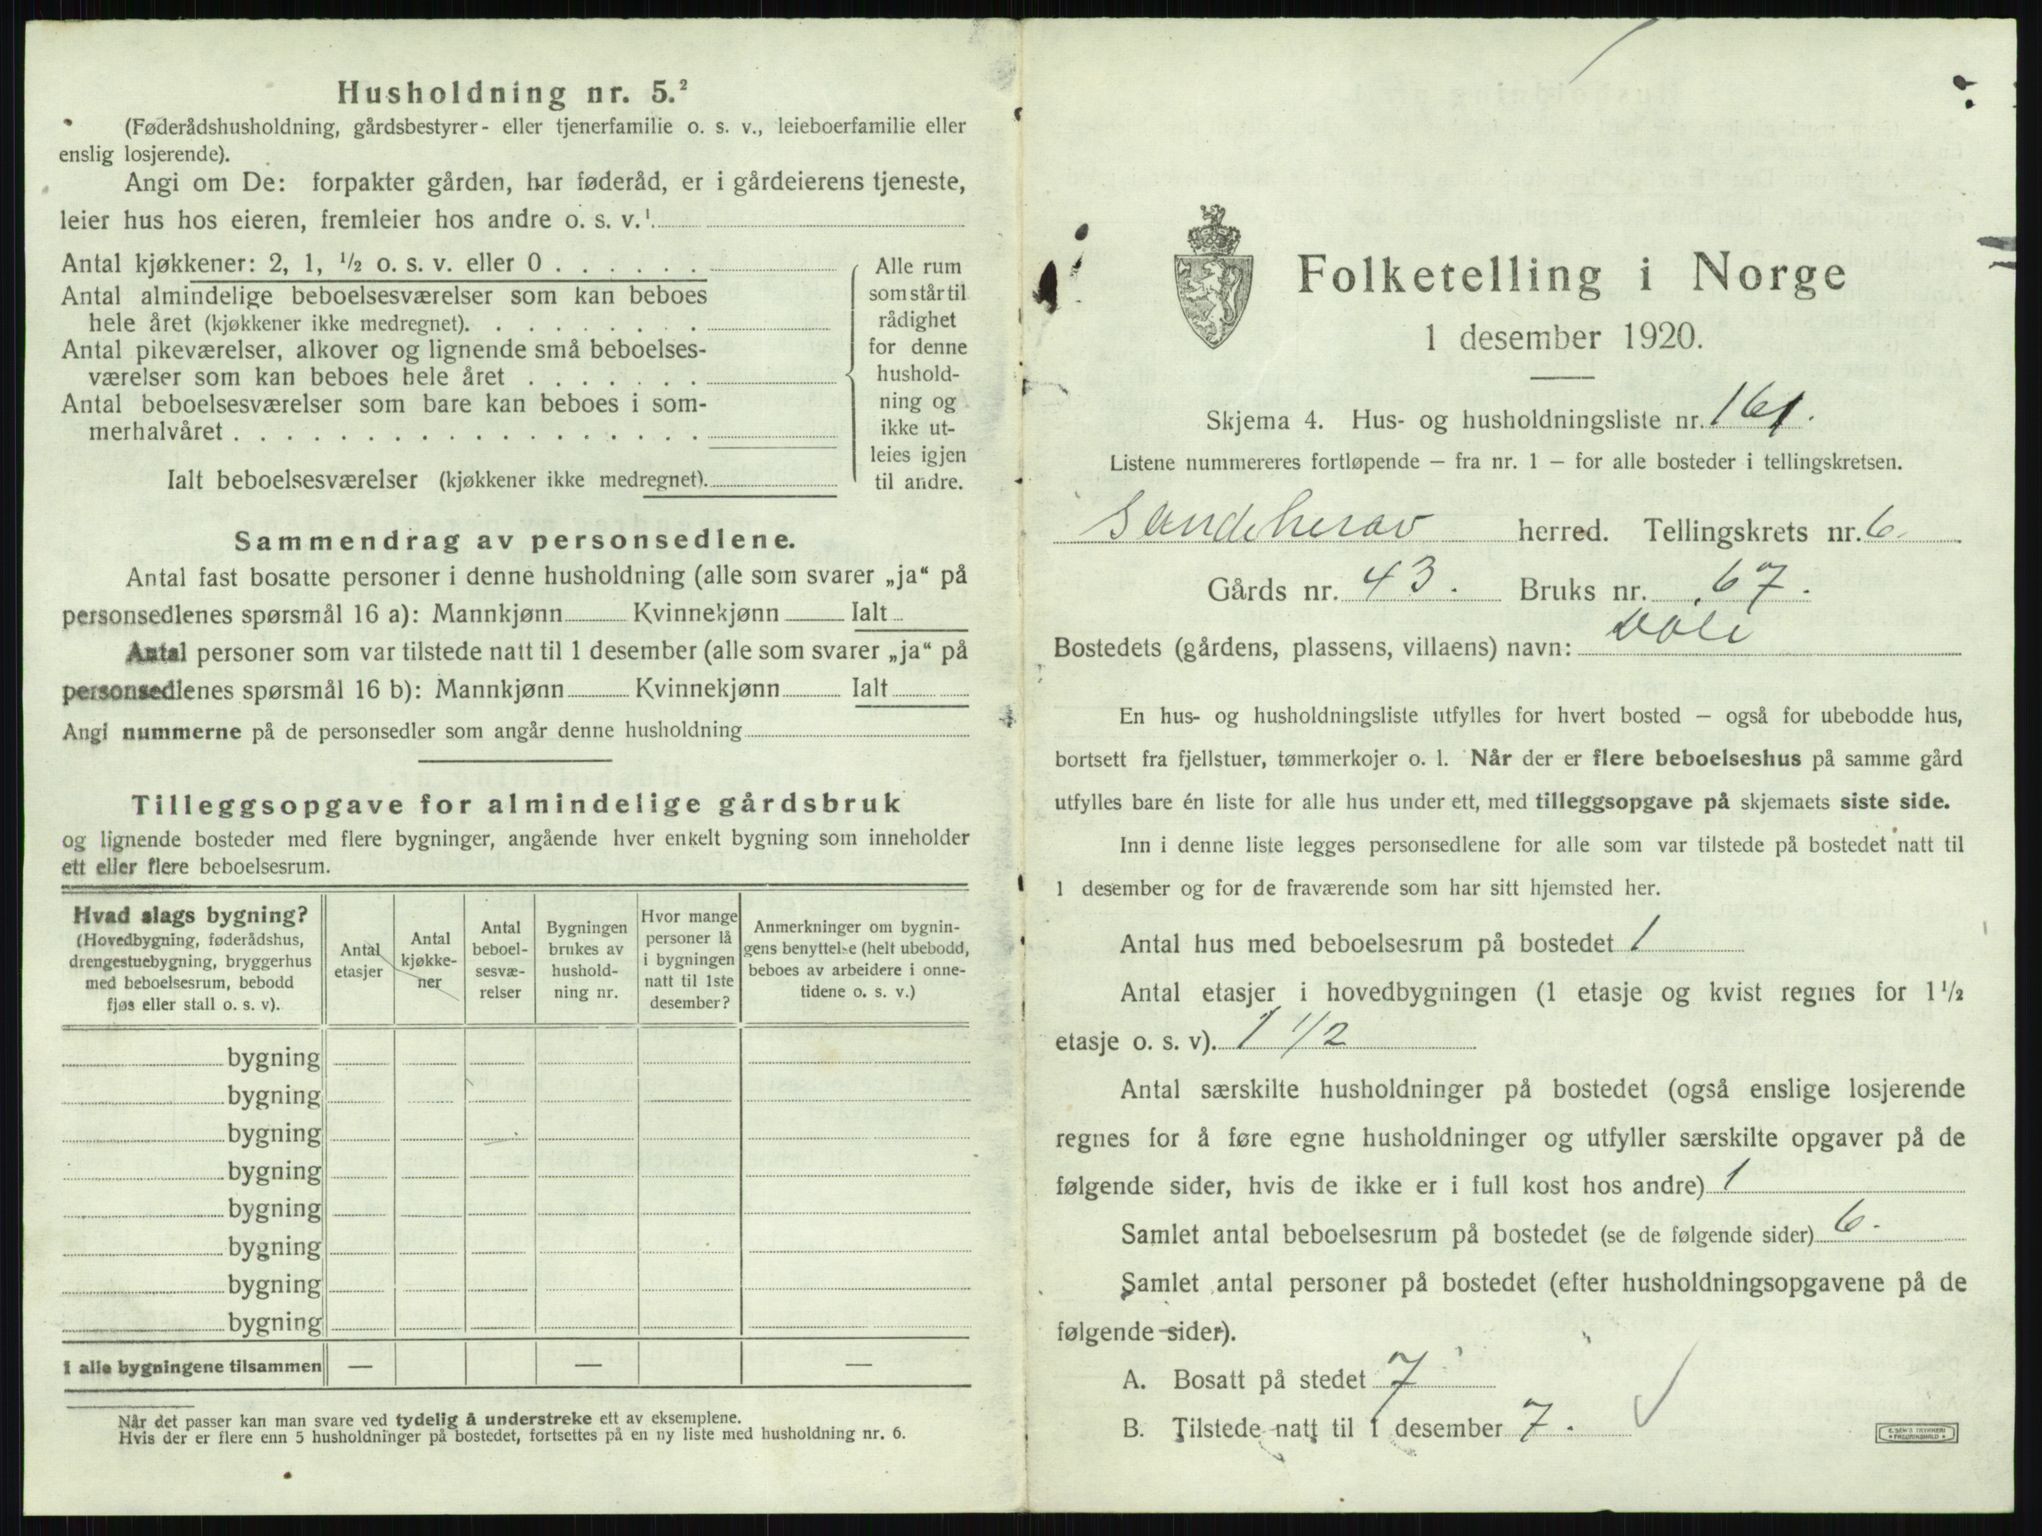 Husholdning nr. 5.²
(Føderådshusholdning, gårdsbestyrer- eller tjenerfamilie o. s. v., leieboerfamilie eller
enslig losjerende).
Angi om De: forpakter gården, har føderåd, er i gårdeierens tjeneste,
leier hus hos eieren, fremleier hos andre o. s. v.¹
Antal kjøkkener: 2, 1, ½ o. s. v. eller 0 . . . . . .
Antal almindelige beboelsesværelser som kan beboes
hele året (kjøkkener ikke medregnet). . . . . . . . .
Antal pikeværelser, alkover og lignende små beboelses-
værelser som kan beboes hele året . . . . . . .
Antal beboelsesværelser som bare kan beboes i som-
merhalvåret . . . . . . . . . . . . . . . . . .
Ialt beboelsesværelser (kjøkkener ikke medregnet).
Alle rum
som står til
rådighet
for denne
hushold-
ning og
ikke ut-
leies igjen
til andre.
Sammendrag av personsedlene.
Antal fast bosatte personer i denne husholdning (alle som svarer „ja“ på
personsedlenes spørsmål 16 a): Mannkjønn Kvinnekjønn Ialt
Antal personer som var tilstede natt til 1 desember (alle som svarer „ja“ på
personsedlenes spørsmål 16 b): Mannkjønn Kvinnekjønn Ialt
Angi nummerne på de personsedler som angår denne husholdning
Tilleggsopgave for almindelige gårdsbruk
og lignende bosteder med flere bygninger, angående hver enkelt bygning som inneholder
ett eller flere beboelsesrum.
Hvad slags bygning?
(Hovedbygning, føderådshus,
drengestuebygning, bryggerhus
med beboelsesrum, bebodd
fjøs eller stall o. s. v).
Antal
etasjer
Antal
kjøkke-
ner
Antal
beboel-
sesvæ-
relser
Bygningen
brukes av
hushold-
ning nr.
Hvor mange
personer lå
i bygningen
natt til 1ste
desember?
Anmerkninger om bygnin-
gens benyttelse (helt ubebodd,
beboes av arbeidere i onne-
tidene o. s. v.)
bygning
bygning
bygning
bygning
bygning
bygning
bygning
bygning
I alle bygningene tilsammen — — —
Når det passer kan man svare ved tydelig å understreke ett av eksemplene.
Hvis der er flere enn 5 husholdninger på bostedet, fortsettes på en ny liste med husholdning nr. 6.
Folketelling i Norge
1 desember 1920.
Skjema 4. Hus- og husholdningsliste nr. 161.
Listene nummereres fortløpende – fra nr. 1 – for alle bosteder i tellingskretsen.
Sandeherav herred. Tellingskrets nr. 6.
Gårds nr. 43. Bruks nr. 67.
Bostedets (gårdens, plassens, villaens) navn:
En hus- og husholdningsliste utfylles for hvert bosted – også for ubebodde hus,
bortsett fra fjellstuer, tømmerkojer o. l. Når der er flere beboelseshus på samme gård
utfylles bare én liste for alle hus under ett, med tilleggsopgave på skjemaets siste side.
Inn i denne liste legges personsedlene for alle som var tilstede på bostedet natt til
1 desember og for de fraværende som har sitt hjemsted her.
Antal hus med beboelsesrum på bostedet 1
Antal etasjer i hovedbygningen (1 etasje og kvist regnes for 1½
etasje o. s. v). 1 1/2
Antal særskilte husholdninger på bostedet (også enslige losjerende
regnes for å føre egne husholdninger og utfyller særskilte opgaver på de
følgende sider, hvis de ikke er i full kost hos andre) 1
Samlet antal beboelsesrum på bostedet (se de følgende sider) 6.
Samlet antal personer på bostedet (efter husholdningsopgavene på de
følgende sider).
A. Bosatt på stedet 7
B. Tilstede natt til 1 desember 7.